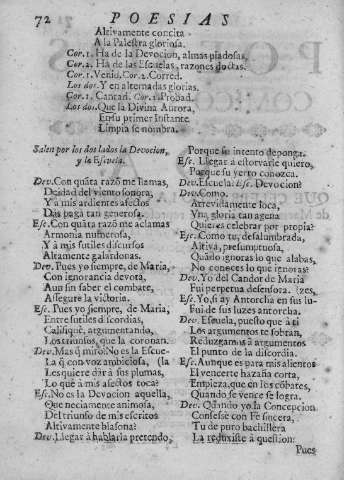 72 POESIAS
Altivamente concita
A la Palestra gloriosa.
Cor.1. Ha de la Devocion, almas piadosas,
Cor.2. Ha de las Escuelas, razones doctas.
Cor.1. Venid. Cor.2. Corred.
Los dos. Y en alternadas glorias,
Cor.1. Cantad. Cor.2. Probad.
Los dos. Que la Divina Aurora,
En su primer Instante
Limpia se nombra.
Salen por los dos lados la Devocion,
y la Escuela.
Dev. Con quãta razõ me llamas,
Deidad del viento sonora,
Y a mis ardientes afectos
Das paga tan generosa.
Esc. Con quãta razõ me aclamas
Armonia numerosa,
Y a mis sutiles discursos
Altamente galardonas.
Dev. Pues yo siempre, de Maria,
Con ignorancia devota,
Aun sin saber el combate,
Assegure la victoria.
Esc. Pues yo siempre, de Maria,
Entre sutiles discordias,
Califiquè, argumentando,
Los triunfos, que la coronan.
Dev. Mas q̃ miro! No es la Escue-
La q̃ con voz ambiciosa, (la
Les quiere dàr à sus plumas,
Lo que à mis afectos toca?
Esc. No es la Devocion aquella,
Que neciamente animosa,
Del triunfo de mis escritos
Altivamente blasona?
Dev. Llegar à hablarla pretendo,
Porque su intento deponga.
Esc. Llegar à estorvarle quiero,
Porque su yerro conozca.
Dev. Escuela. Esc. Devocion?
Dev. Como,
Atrevidamente loca,
Vna gloria tan agena
Quieres celebrar por propia?
Esc. Como tu, desalumbrada,
Altiva, presumptuosa,
Quãdo ignoras lo que alabas,
No conoces lo que ignoras?
Dev. Yo del Candor de Maria
Fui perpetua defensora. (zes,
Esc. Yo, si ay Antorcha en sus lu-
Fui de sus luzes antorcha.
Dev. Escuela, puesto que à ti
Los argumentos te sobran,
Reduzgamos à argumentos
El punto de la discordia.
Esc. Aunque es para mis alientos
El vencerte hazaña corta,
Empieza, que en los cõbates,
Quando se vence se logra.
Dev. Quãndo yo la Concepcion
Confesse con Fè sincera,
Tu de puro bachillera
La reduxiste à question:
Pues